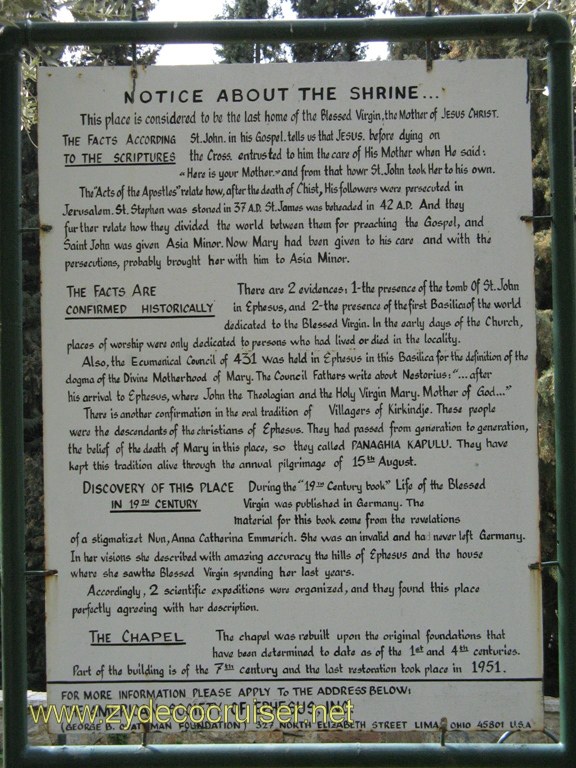 NOTICE ABOUT THE SHRINE...
This place is considered to be the last home of the Blessed Virgin, the Mother of JESUS CHRIST.
THE FACTS ACCORDING St. John. in his Gospel. tells us that JESUS, before dying on
TO THE SCRIPTURES the Cross, entrusted to him the care of His Mother when He said:
"Here is your Mother." and from that howr St. John took Her to his own.
The "Acts of the Apostles" relate how, after the death of Chist, His followers were persecuted in
Jerusalem. St. Stephen was stoned in 37 A.D. St. James was beheaded in 42 A.D. And they
further relate how they divided the world between them for preaching the Gospel, and
Saint John was given Asia Minor. Now Mary had been given to his care and with the
persecutions, probably brought her with him to Asia Minor.
THE FACTS ARE There are 2 evidences: 1-the presence of the tomb Of St. John
CONFIRMED HISTORICALLY in Ephesus, and 2-the presence of the first Basilica of the world
dedicated to the Blessed Virgin. In the early days of the Church,
places of worship were only dedicated to persons who had lived or died in the locality.
Also, the Ecumenical Council of 431 was held in Ephesus in this Basilica for the definition of the
dogma of the Divine Motherhood of Mary. The Council Fathers write about Nestorius: "... after
his arrival to Ephesus, where John the Theologian and the Holy Virgin Mary. Mother of God..."
There is another confirmation in the oral tradition of Villagers of Kirkindje. These people
were the descendants of the christians of Ephesus. They had passed from generation to generation,
the belief of the death of Mary in this place, so they called PANAGHIA KAPULU. They have
kept this tradition alive through the annual pilgrimage of 15th August.
DISCOVERY OF THIS PLACE During the "19th Century book" Life of the Blessed
IN 19TH CENTURY Virgin was published in Germany. The
material for this book come from the revelations
of a stigmatizet Nun, Anna Catherina Emmerich. She was an invalid and had never left Germany.
In her visions she described with amazing accuracy the hills of Ephesus and the house
where she sawthe Blessed Virgin spending her last years.
Accordingly, 2 scientific expeditions were organized, and they found this place
perfectly agreeing with her description.
THE CHAPEL The chapel was rebuilt upon the original foundations that
have been determined to date as of the 1st and 4th centuries.
Part of the building is of the 7th century and the last restoration took place in 1951.
FOR MORE INFORMATION PLEASE APPLY TO THE ADDRESS BELOW:
SOCIETY OF EPHESUS INC.
(GEORGE B. FOUNDATION) 327 NORTH ELIZABETH STREET LIMA, OHIO 45801 U.S.A
www.zydecocruiser.net